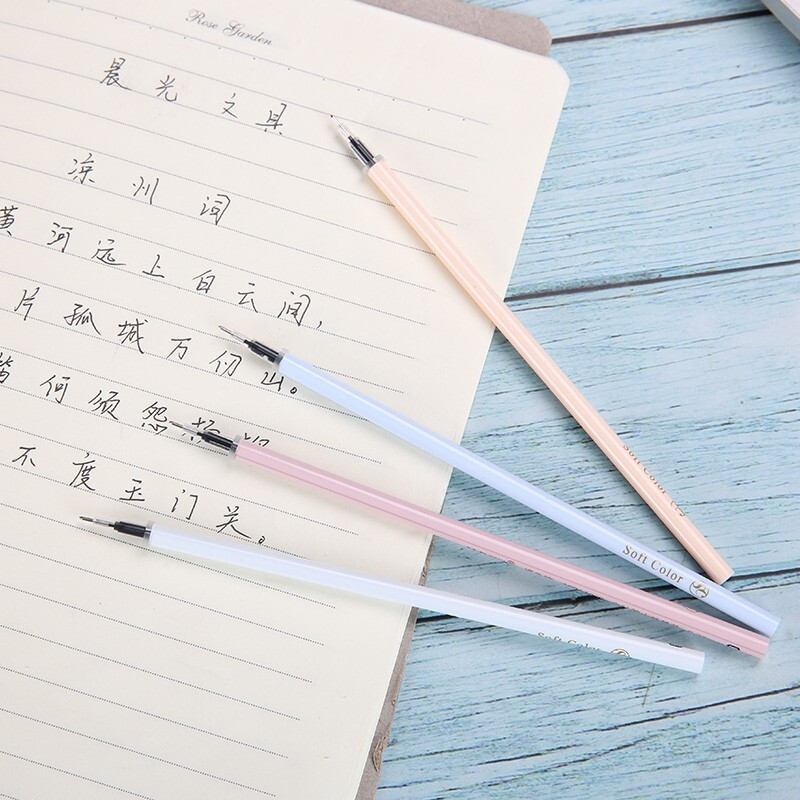 Rose Garden
晨光 文具
凉州词
黄河远上白云间,
片孤城万仞山。
笛何须怨杨柳
不度玉门关。
Soft Color
Soft Color
Soft Color